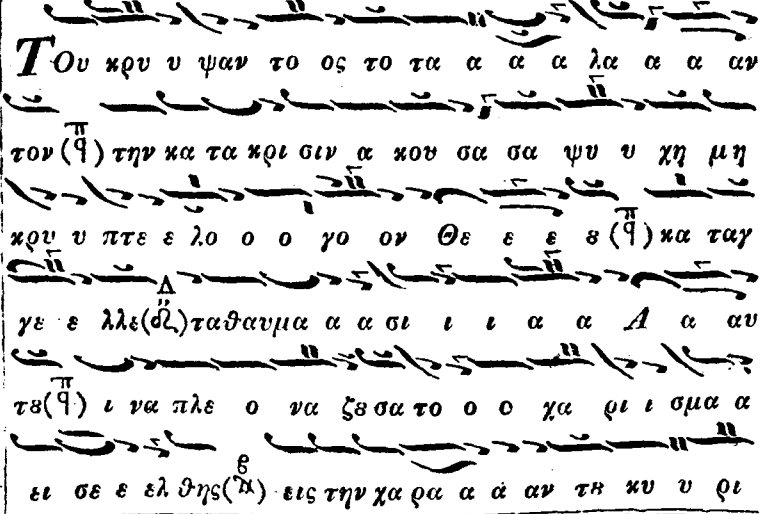 ΤΟυ κρυ υ ψαν το ος το τα α α α λα α α αν
τον (π ϥ) την κα τα κρι σιν α κου σα σα ψυ υ χη μη
κρυ υ πτε ε λο ο ο γο ον Θε ε ε ȣ (π ϥ) κα ταγ
γε ε λλε (Δ) τα θαυμα α α σι ι ι α α Α α αυ
τȣ (π ϥ) ι να πλε ο να ζȣ σα το ο ο χα ρι ι σμα α
ει σε ε ελ θης (β) εις την χα ρα α ά αν τȣ κυ υ ρι